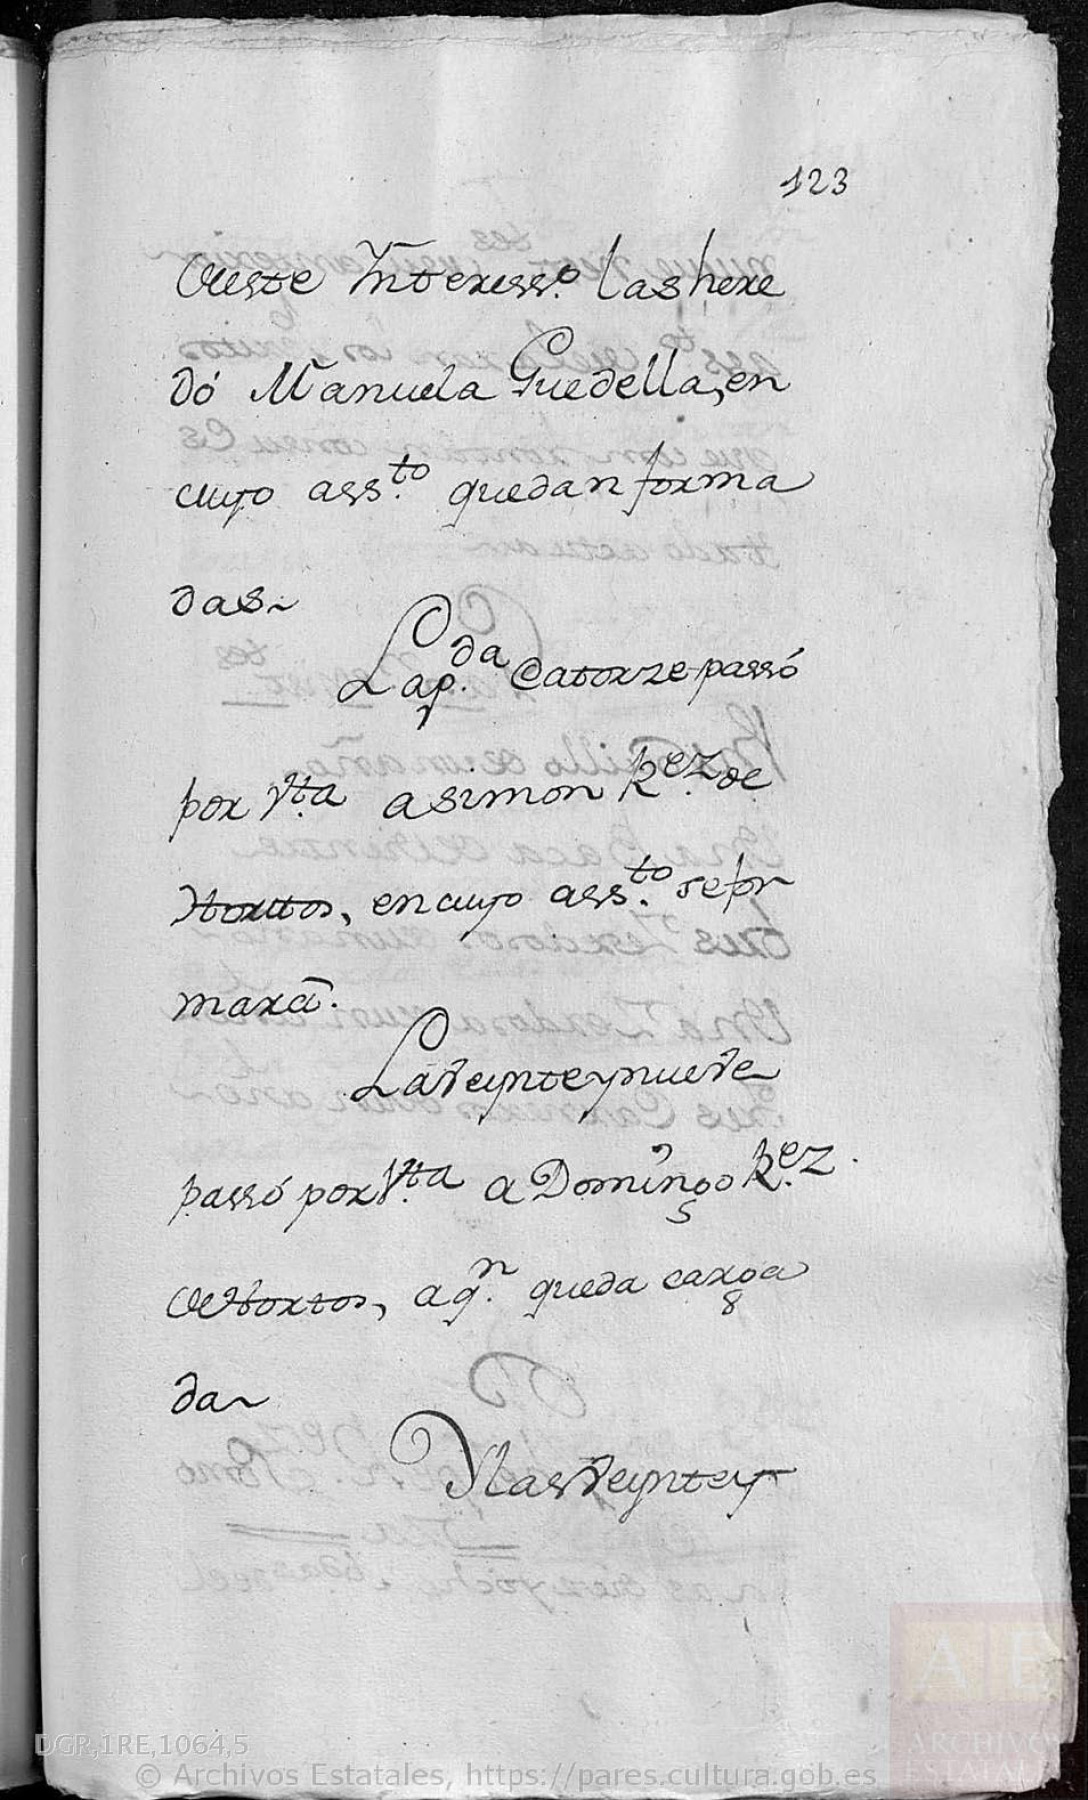 123
deeste Interess.º las here
dó Manuela Guedella, en
cuyo ass.to quedan forma
das~
La p.da Catorze passó
por V.ta a simon R.ez de
Hortos, en cuyo ass.to se for
mará.
La veynte y nueve
passó por V.ta a Domingo R.ez
de Hortos, a q.n queda carga
da~
Y las veynte y
DGR,1RE,1064,5
© Archivos Estatales, https://pares.cultura.gob.es
AE
ARCHIVOS
ESTATALES